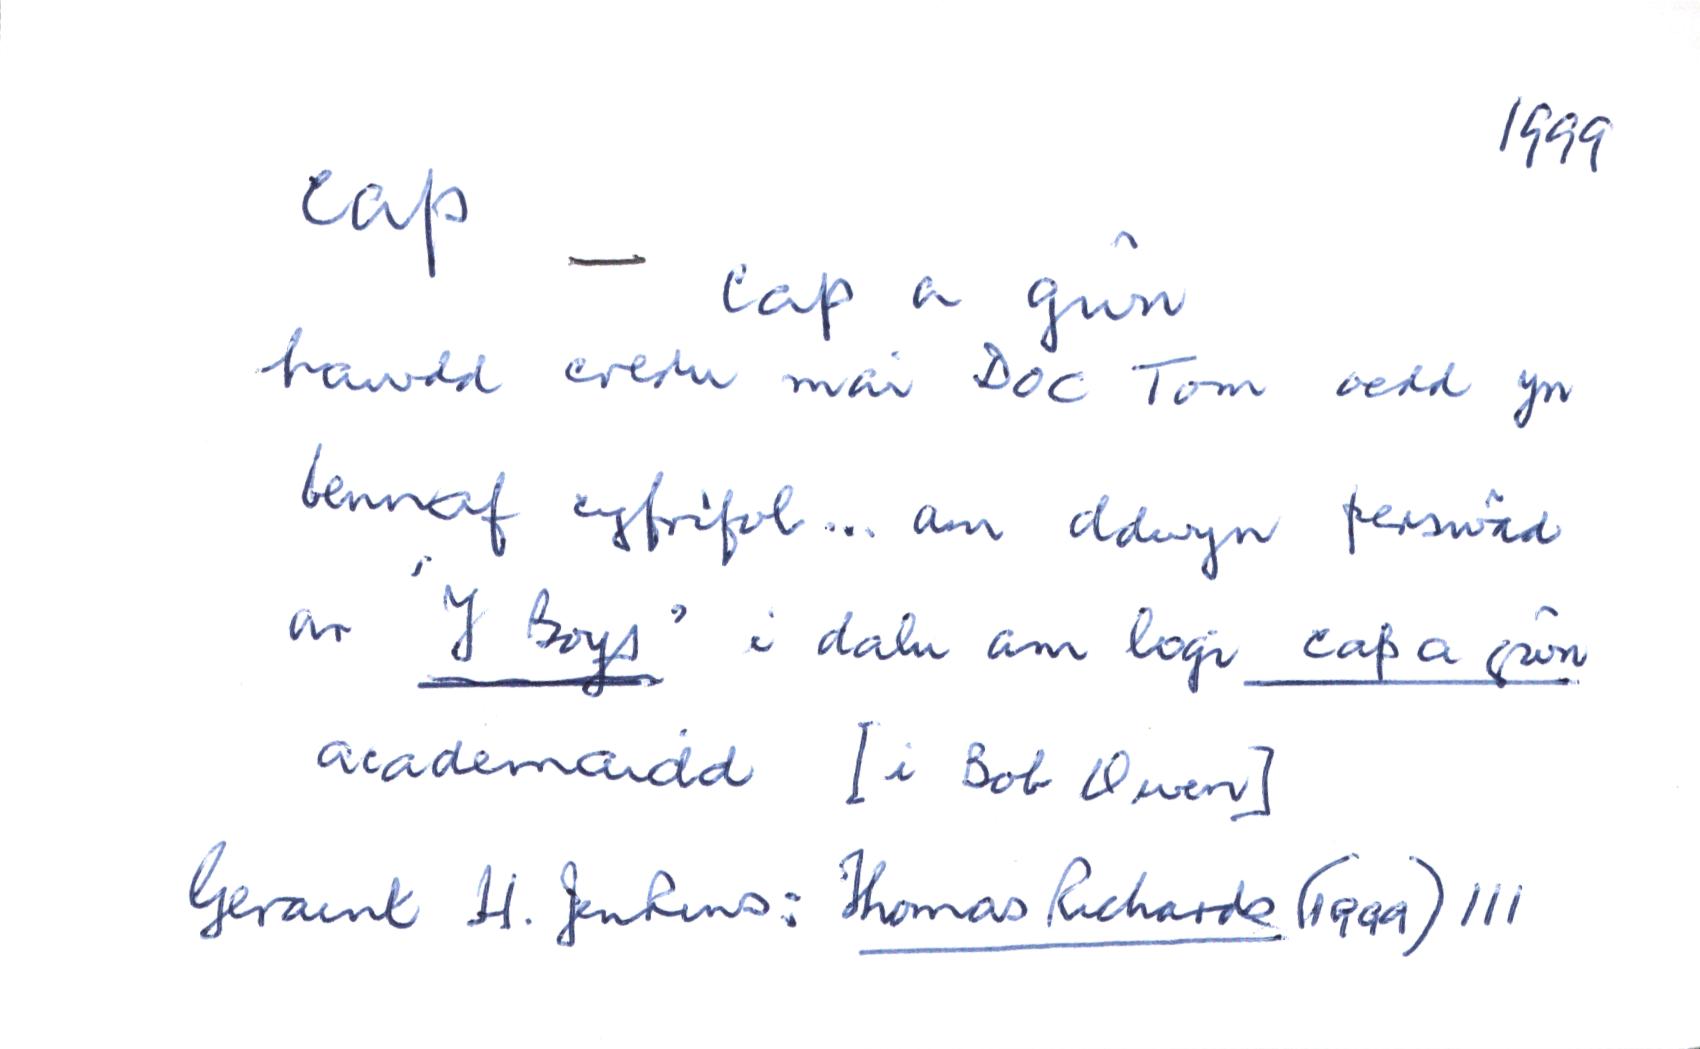 1999
cap
— cap a gŵn
hawdd credu mai Doc Tom oedd yn
bennaf cyfrifol... am ddwyn perswâd
ar 'Y Boys' i dalu am logi cap a gŵn
academaidd [i Bob Owen]
Geraint H. Jenkins: Thomas Richards (1999) 111